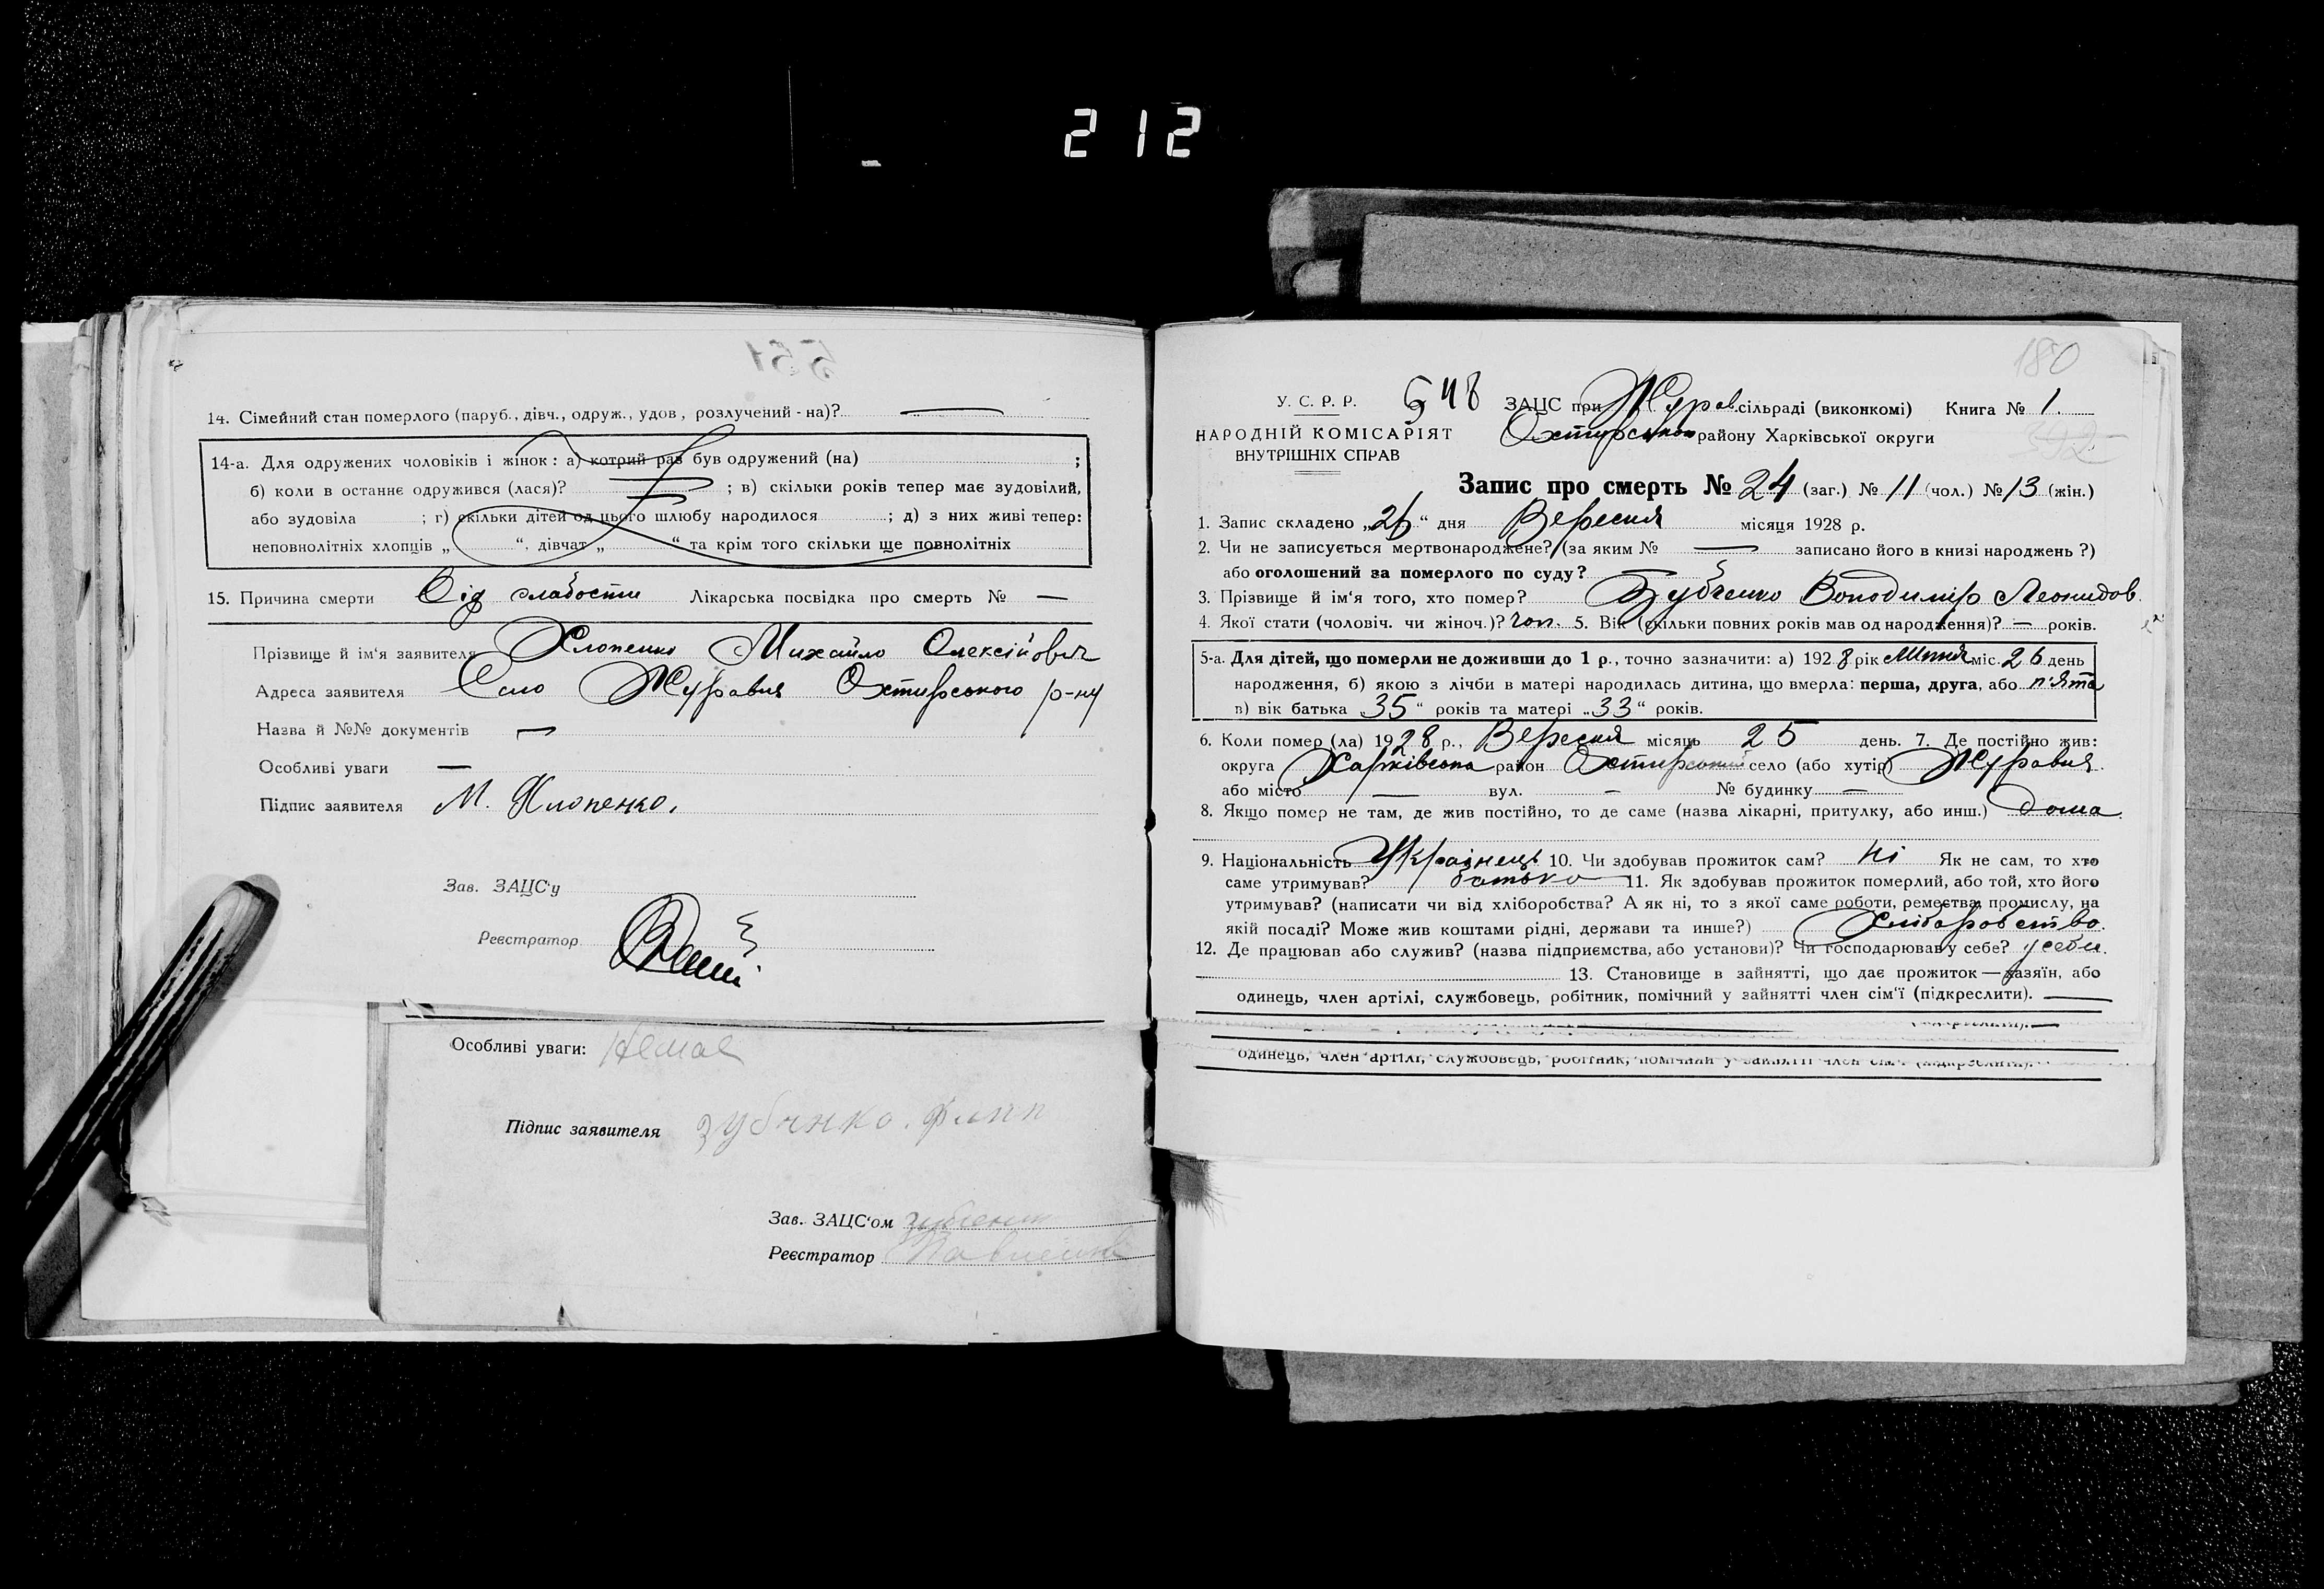 212
551
14. Сімейний стан померлого (паруб., дівч., одруж., удов, розлучений-на)? —
14-а. Для одружених чоловіків і жінок: а) котрий раз був одружений (на) ;
б) коли в останнє одружився (лася)? ; в) скільки років тепер має зудовілий,
або зудовіла ; г) скільки дітей од цього шлюбу народилося ; д) з них живі тепер:
неповнолітніх хлопців „ “, дівчат „ “ та крім того скільки ще повнолітніх
15. Причина смерти Від слабости Лікарська посвідка про смерть № —
Прізвище й ім‘я заявителя Хлопенко Михайло Олексійович
Адреса заявителя Село Журавня Охтирського р-ну
Назва й №№ документів —
Особливі уваги —
Підпис заявителя М. Хлопенко.
Зав. ЗАЦС‘у
Реєстратор
Особливі уваги: Немає
Підпис заявителя зубчнко. филип
Зав. ЗАЦС‘ом
Реєстратор
180
У. С. Р. Р. 548 ЗАЦС при Журав. сільраді (виконкомі) Книга № 1.
НАРОДНІЙ КОМІСАРІЯТ Охтирського району Харківської округи
ВНУТРІШНІХ СПРАВ
392
Запис про смерть № 24 (заг.) № 11 (чол.) № 13 (жін.)
1. Запис складено „26“ дня Вересня місяця 1928 р.
2. Чи не записується мертвонароджене? (за яким № — записано його в книзі народжень?)
або оголошений за померлого по суду? —
3. Прізвище й ім‘я того, хто помер? Зубченко Володимір Леонидов.
4. Якої стати (чоловіч. чи жіноч.)? чол. 5. Вік (скільки повних років мав од народження)? — років.
5-а. Для дітей, що померли не доживши до 1 р., точно зазначити: а) 1928 рік Липня міс. 26 день
народження, б) якою з лічби в матері народилась дитина, що вмерла: перша, друга, або п‘ята
в) вік батька „35“ років та матері „33“ років.
6. Коли помер (ла) 1928 р., Вересня місяць 25 день. 7. Де постійно жив:
округа Харківська район Охтирський село (або хутір) Журавня.
або місто — вул. — № будинку —
8. Якщо помер не там, де жив постійно, то де саме (назва лікарні, притулку, або инш.) дома
9. Національність Українець 10. Чи здобував прожиток сам? Ні Як не сам, то хто
саме утримував? батько 11. Як здобував прожиток померлий, або той, хто його
утримував? (написати чи від хліборобства? А як ні, то з якої саме роботи, ремества, промислу, на
якій посаді? Може жив коштами рідні, держави та инше?) Хліборобство.
12. Де працював або служив? (назва підприємства, або установи)? Чи господарював у себе? у себе.
13. Становище в зайнятті, що дає прожиток — хазяїн, або
одинець, член артілі, службовець, робітник, помічний у зайнятті член сім‘ї (підкреслити). —
одинець, член артілі, службовець, робітник, помічний у зайнятті член сім‘ї (підкреслити).